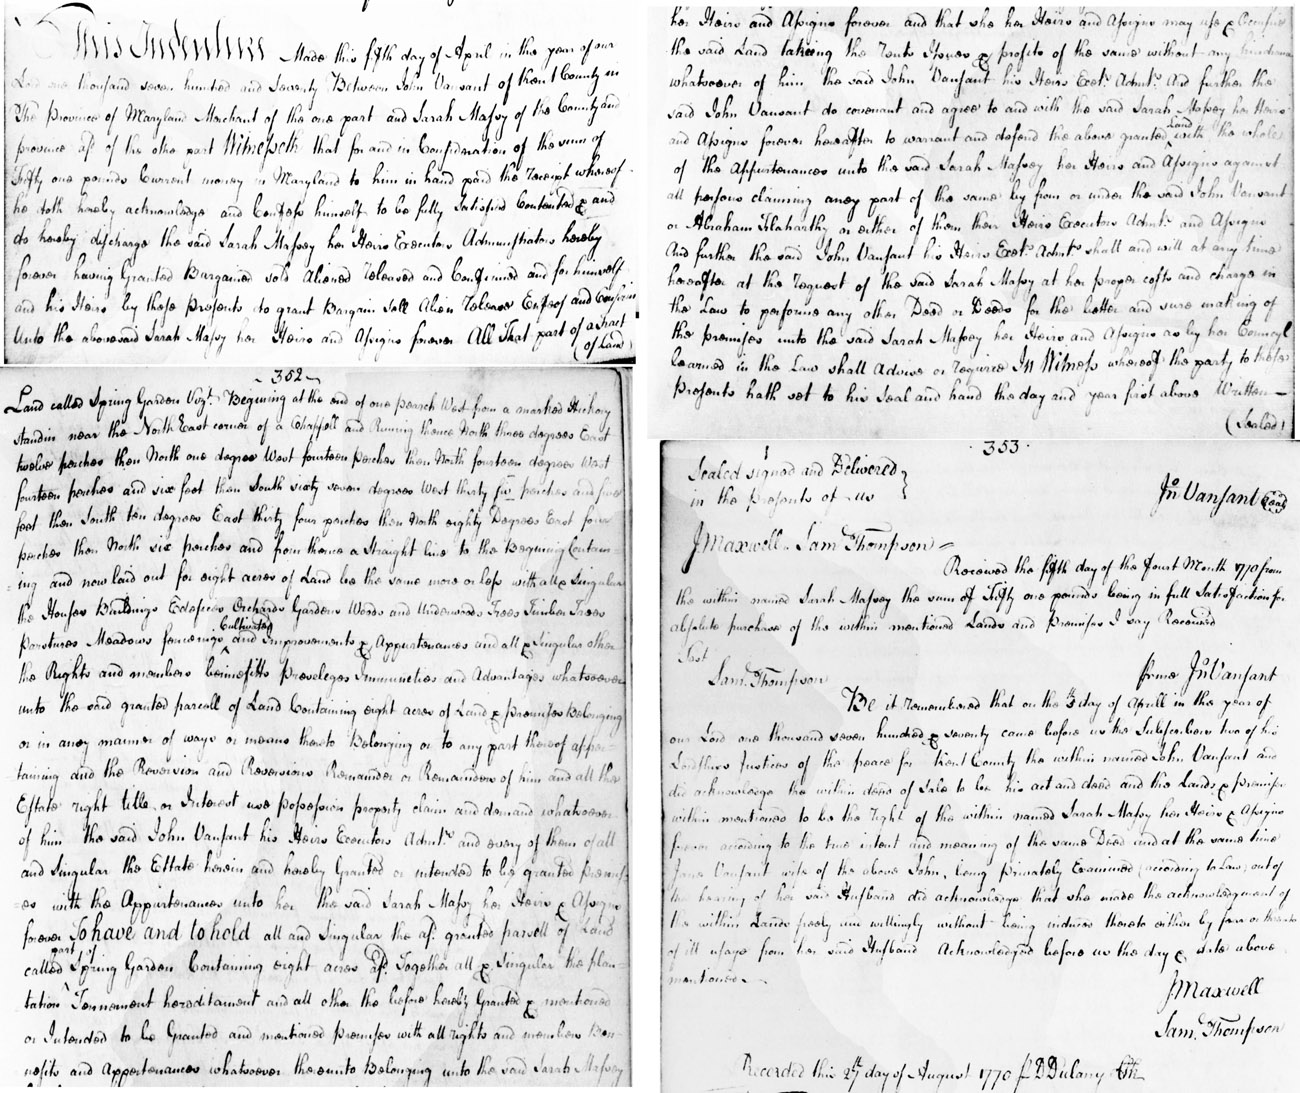 This Indenture Made this fifth day of April in the year of our
Lord one thousand seven hundred and Seventy Between John Vansant of Kent County in
The Province of Maryland Merchant of the one part and Sarah Massey of the County and
province afd. of the other part Witnesseth that for and in Consideration of the sum of
Fifty one pounds Current money in Maryland to him in hand paid the receipt whereof
he doth hereby acknowledge and Confess himself to be fully Satisfied Contented & and
do hereby discharge the said Sarah Massey her Heirs Executors Administrators hereby
forever having Granted Bargained sold Aliened released and Confirmed and for himself
and his Heirs by these presents do grant Bargain sell Alien Release Enfeof and Confirm
Unto the abovesaid Sarah Massy her Heirs and Assigns forever All That part of a tract
(of Land)
352
Land called Spring Garden Vizt. Begining at the end of one pearch West from a marked Hickory
standin near the North East corner of a Chappell and Runing thence North three degrees East
twelve perches then North one degree West fourteen perches then North fourteen degrees West
fourteen perches and six feet then South sixty seven degrees West thirty perches and five
feet then South ten degrees East thirty four perches then North eighty Degrees East four
perches then North six perches and from thence a Straight line to the Begining Contain=
=ing and now laid out for eight acres of Land be the same more or less with all & Singular
the Houses Buildings Edefices Orchards Gardens Woods and Underwoods Trees Timber Trees
Parstures Meadows fencerings Cultivated and Improvements & Appurtenances and all & Singular other
the Rights and members bennefitts Preveleges Immunities and Advantages whatsoever
unto the said granted parcell of Land Containing eight acres of Land & premises Belonging
or in aney manner of ways or means thereto Belonging or to any part thereof apper=
taining and the Reversion and Reversions Remainder or Remainders of him and all the
Estate right title or Interest use possession property claim and demand whatsoever
of him the said John Vansant his Heirs Executors Admtrs. and every of them of all
and Singular the Estate herein and hereby Granted or intended to be granted premis=
=es with the Appurtenances unto her the said Sarah Massy her Heirs & Assigns
forever To have and to hold all and Singular the afd. granted parcell of Land
called part of Spring Garden Containing eight acres afd. Together all & Singular the plan=
tation Tennement hereditament and all other the before hereby Granted & mentioned
or Intended to be Granted and mentioned Premises with all rights and members Ben=
nefits and Appertenances whatsoever thereunto Belonging unto the said Sarah Massey
her Heirs and Assigns forever and that she her Heirs and Assigns may use & Occupie
the said Land takeing the rents Issues & profits of the same without any hindrance
whatsoever of him the said John Vansant his Heirs Exetrs. Admtrs. And further the
said John Vansant do covenant and agree to and with the said Sarah Massey her Heirs
and Assigns forever hereafter to warrant and defend the above granted Land with the whole
of the Appurtenances unto the said Sarah Massey her Heirs and Assigns against
all persons claiming aney part of the same by from or under the said John Vansant
or Abraham or either of them their Heirs Executors Admtrs. and Assigns
And further the said John Vansant his Heirs Exetrs. Admtrs. shall and will at any time
hereafter at the request of the said Sarah Massy at her proper costs and charge in
the Law to performe any other Deed or Deeds for the better and sure making of
the premises unto the said Sarah Massey her Heirs and Assigns as by her Councyl
learned in the Law shall Advise or require In Witness whereof the party to these
Presents hath set to his Seal and hand the day and year first above Written
(Sealed)
353
Sealed signed and Delivered
in the Presents of us
Jno. Vansant Seal
J Maxwell. Sam. Thompson
Received the fifth day of the fourt Month 1770 from
the within named Sarah Massey the sum of Fifty one pounds being in full Satisfaction for
absolute purchase of the within mentioned Lands and Premises I say Received
Test
Sam. Thompson
Jno. Vansant
Be it remembered that on the 5th day of Aprill in the year of
our Lord one thousand seven hundred & seventy came before us the Subscribers two of his
Lordships Justices of the peace for Kent County the within named John Vansant and
did acknowledge the within deed of Sale to be his act and deed and the Lands & premises
within mentioned to be the right of the within named Sarah Massy her Heirs & Assigns
forever according to the true intent and meaning of the same Deed and at the same time
Jane Vansant wife of the above John, being privately Examined (according to Law) out of
the hearing of her said Husband did acknowledge that she made the acknowledgment of
the within Lands freely and willingly without being induced thereto either by fear or threats
of ill usage from her said Husband Acknowledged before us the day & date above
mentioned
J Maxwell
Sam. Thompson
Recorded this 27th day of August 1770 D Dulany Clk